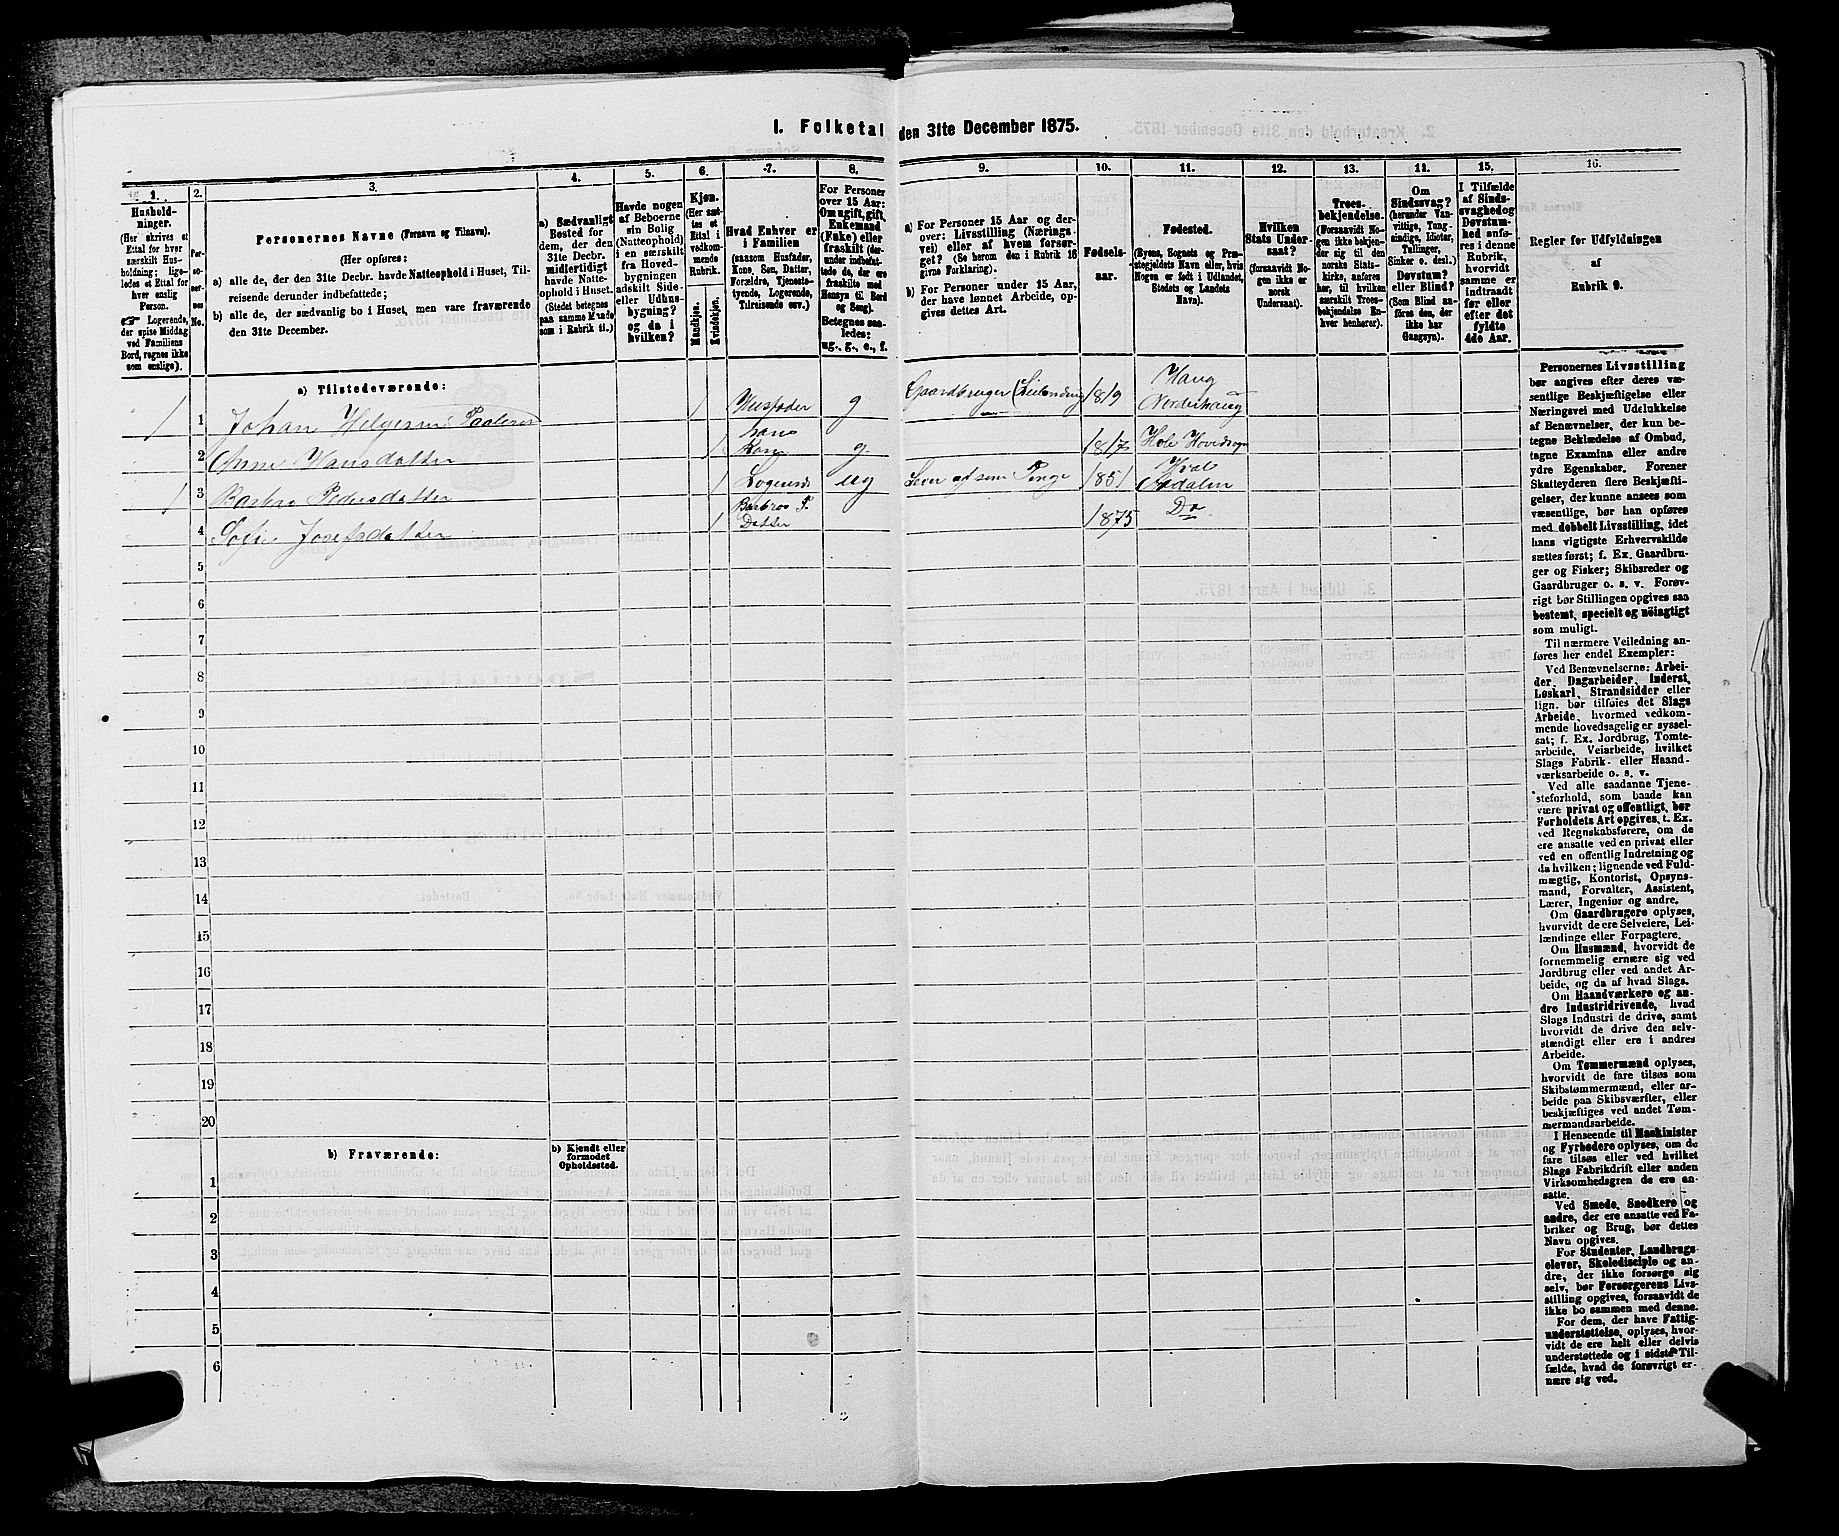 1. Folketal den 31te December 1875.
1.
Hushold-
ninger.
(Her skrives et
Ettal for hver
særskilt Hus-
holdning; lige-
ledes et Ettal for
hver enslig
Person.
☞ Logerende,
der spise Middag
ved Familiens
Bord, regnes ikke
som enslige).
2.
Per-
so-
ner-
nes
No.
3.
Personernes Navne (Fornavn og Tilnavn).
(Her opføres:
a) alle de, der den 31te Decbr. havde Natteophold i Huset, Til-
reisende derunder indbefattede;
b) alle de, der sædvanlig bo i Huset, men vare fraværende
den 31te December.
4.
a) Sædvanligt
Bosted for
dem, der den
31te Decbr.
midlertidigt
havde Natte-
ophold i Huset.
(Stedet betegnes
paa samme Maade
som i Rubrik 11.)
5.
Havde nogen
af Beboerne
sin Bolig
(Natteophold)
i en særskilt
fra Hoved-
bygningen
adskilt Side-
eller Udhus-
bygning?
og da i
hvilken?
6.
Kjøn.
(Her sæt-
tes et
Ettal i
vedkom-
mende
Rubrik.
Mandkjøn.
Kvindekjøn.
7.
Hvad Enhver er
i Familien
(saasom Husfader,
Kone, Søn, Datter,
Forældre, Tjeneste-
tyende, Logerende,
Tilreisende osv.)
8.
For Personer
over 15 Aar:
Om ugift, gift,
Enkemand
(Enke) eller
fraskilt (der-
under indbefat-
tede de, der ere
fraskilte med
Hensyn til Bord
og Seng).
Betegnes saa-
ledes:
ug., g., e., f.
9.
a) For Personer 15 Aar og der-
over: Livsstilling (Nærings-
vei) eller af hvem forsør-
get? (Se herom den i Rubrik 16
givne Forklaring).
b) For Personer under 15 Aar,
der have lønnet Arbeide, op-
gives dettes Art.
10.
Fødsels-
aar.
11.
Fødested.
(Byens, Sognets og Præ-
stegjeldets Navn eller, hvis
Nogen er født i Udlandet,
Stedets og Landets
Navn).
12.
Hvilken
Stats Under-
saat?
(forsaavidt No-
gen ikke er
norsk
Undersaat).
13.
Troes-
bekjendelse.
(Forsaavidt No-
gen ikke bekjen-
der sig til den
norske Stats-
kirke, anføres
her, til hvilken
særskilt Troes-
bekjendelse En-
hver henhører).
14.
Om
Sindssvag?
(herunder Van-
vittige, Tung-
sindige, Idioter,
Tullinger,
Sinker o. desl.)
Døvstum?
eller Blind?
(Som Blind an-
føres den, der
ikke har
Gangsyn).
15.
I Tilfælde
af Sinds-
svaghed og
Døvstum-
hed anfø-
res i denne
Rubrik,
hvorvidt
samme er
indtraadt
før eller
efter det
fyldte
4de Aar.
16.
Regler for Udfyldningen
af
Rubrik 9.
a) Tilstedeværende:
1 1 Johan Helgesen 1 Husfader g Gaardbruger 1819 Haug Norderhaug
2 Anne Hansdatter 1 hans Kone g 1817 Hole Hovedsogn
1 3 Barbro Pedersdatter 1 ug Lever af sine Penge 1851
4 Sofie Josefsdatter 1 Barbros P. Datter 1875 Do
5
6
7
8
9
10
11
12
13
14
15
16
17
18
19
20
b) Fraværende:
b) Kjendt eller
formodet
Opholdssted.
1
2
3
4
5
6
Personernes Livsstilling
bør angives efter deres væ-
sentlige Beskjæftigelse eller
Næringsvei med Udelukkelse
af Benævnelser, der kun be-
tegne Beklædelse af Ombud,
tagne Examina eller andre
ydre Egenskaber. Forener
Skatteyderen flere Beskjæfti-
gelser, der kunne ansees som
væsentlige, bør han opføres
med dobbelt Livsstilling, idet
hans vigtigste Erhvervskilde
sættes først; f. Ex. Gaardbru-
ger og Fisker; Skibsreder og
Gaardbruger o. s. v. Forøv-
rigt bør Stillingen opgives saa
bestemt, specielt og nøiagtigt
som muligt.
Til nærmere Veiledning an-
føres her endel Exempler:
Ved Benævnelserne: Arbei-
der, Dagarbeider, Inderst,
Løskarl, Strandsidder eller
lign. bør tilføies det Slags
Arbeide, hvormed vedkom-
mende hovedsagelig er syssel-
sat; f. Ex. Jordbrug, Tomte-
arbeide, Veiarbeide, hvilket
Slags Fabrik- eller Haand-
værksarbeide o. s. v.
Ved alle saadanne Tjene-
steforhold, som baade kan
være privat og offentligt, bør
Forholdets Art opgives, t. Ex.
ved Regnskabsførere, om de
ere ansatte ved en privat eller
ved en offentlig Indretning og
da hvilken; lignende ved Fuld-
mægtig, Kontorist, Opsyns-
mand, Forvalter, Assistent,
Lærer, Ingeniør og andre.
Om Gaardbrugere oplyses,
hvorvidt de ere Selveiere, Lei-
lændinge eller Forpagtere.
Om Husmænd, hvorvidt de
fornemmelig ernære sig ved
Jordbrug eller ved andet Ar-
beide, og da af hvad Slags.
Om Haandværkere og an-
dre Industridrivende, hvad
Slags Industri de drive, samt
hvorvidt de drive den selv-
stændigt eller ere i andres
Arbeide.
Om Tømmermænd oplyses,
hvorvidt de fare tilsøs som
Skibstømmermænd, eller ar-
beide paa Skibsværfter, eller
beskjæftiges ved andet Tøm-
mermandsarbeide.
I Henseende til Maskinister
og Fyrbødere oplyses, om de
fare tilsøs eller ved hvilket
Slags Fabrikdrift eller anden
Virksomhedsgren de ere an-
satte.
Ved Smede, Snedkere og
andre, der ere ansatte ved Fa-
briker og Brug, bør dettes
Navn opgives.
For Studenter, Landbrugs-
elever, Skoledisciple og an-
dre, der ikke forsørge sig
selv, bør Forsørgerens Livs-
stilling opgives, forsaavidt de
ikke bo sammen med denne.
For dem, der have Fattig-
understøttelse, oplyses, hvor-
vidt de ere helt eller delvis
understøttede og i sidste Til-
fælde, hvad de forøvrigt er-
nære sig ved.